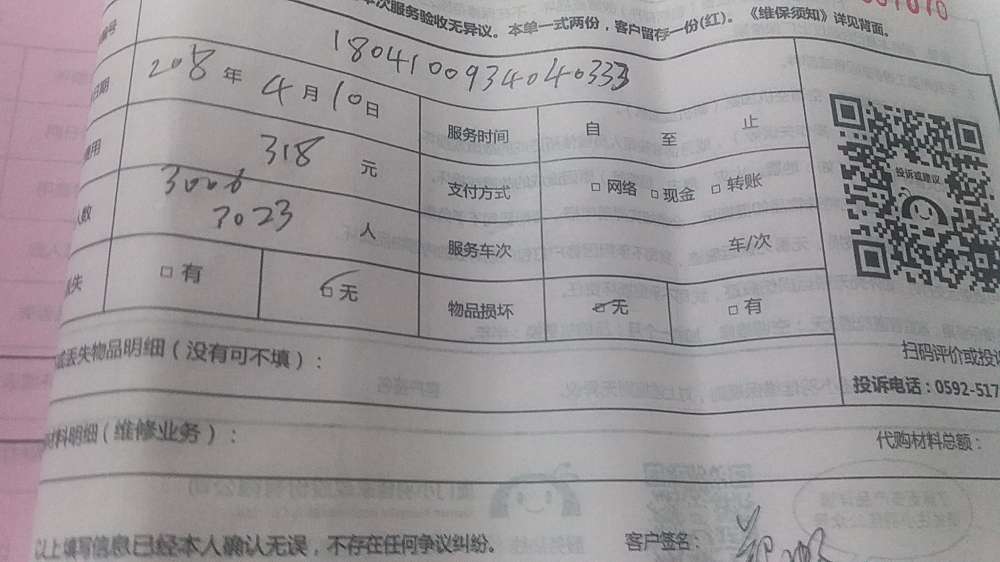 本次服务验收无异议。本单一式两份，客户留存一份(红)。《维保须知》详见背面。
编号 180410093404033
日期 2018年4月10日 服务时间 自 至 止
费用 318 元 支付方式 □网络 □现金 □转账
人数 3006 3023 人 服务车次 车/次
□有 □无 物品损坏 □无 □有
投诉或建议
丢失物品明细（没有可不填）：
扫码评价或投
投诉电话：0592-517
材料明细（维修业务）：
代购材料总额：
以上填写信息已经本人确认无误，不存在任何争议纠纷。
客户签名：